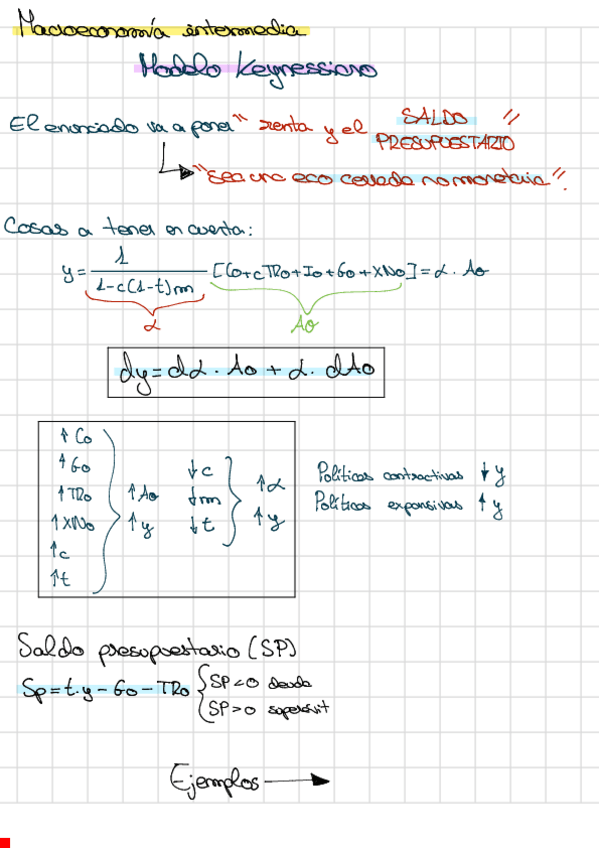 Macroeconomía intermedia
Modelo Keynessiano
El enunciado va a poner " renta y el SALDO PRESUPUESTARIO "
"sea una eco cerrada no monetaria".
Cosas a tener en cuenta:
y = 1 / 1-c(1-t)m [Co+cTRo+Io+Go+XNo] = α. Ao
α
Ao
dy = dα . Ao + α. dAo
↑ Co
↑ Go
↑ TRo
↑ XNo
↑ c
↑ t
↑ Ao
↑ y
↓ c
↓ m
↓ t
↑ α
↑ y
Políticas contractivas ↓ y
Políticas expansivas ↑ y
Saldo presupuestario (SP)
Sp = t.y - Go - TRo
SP<0 deuda
SP>0 superávit
Ejemplos →